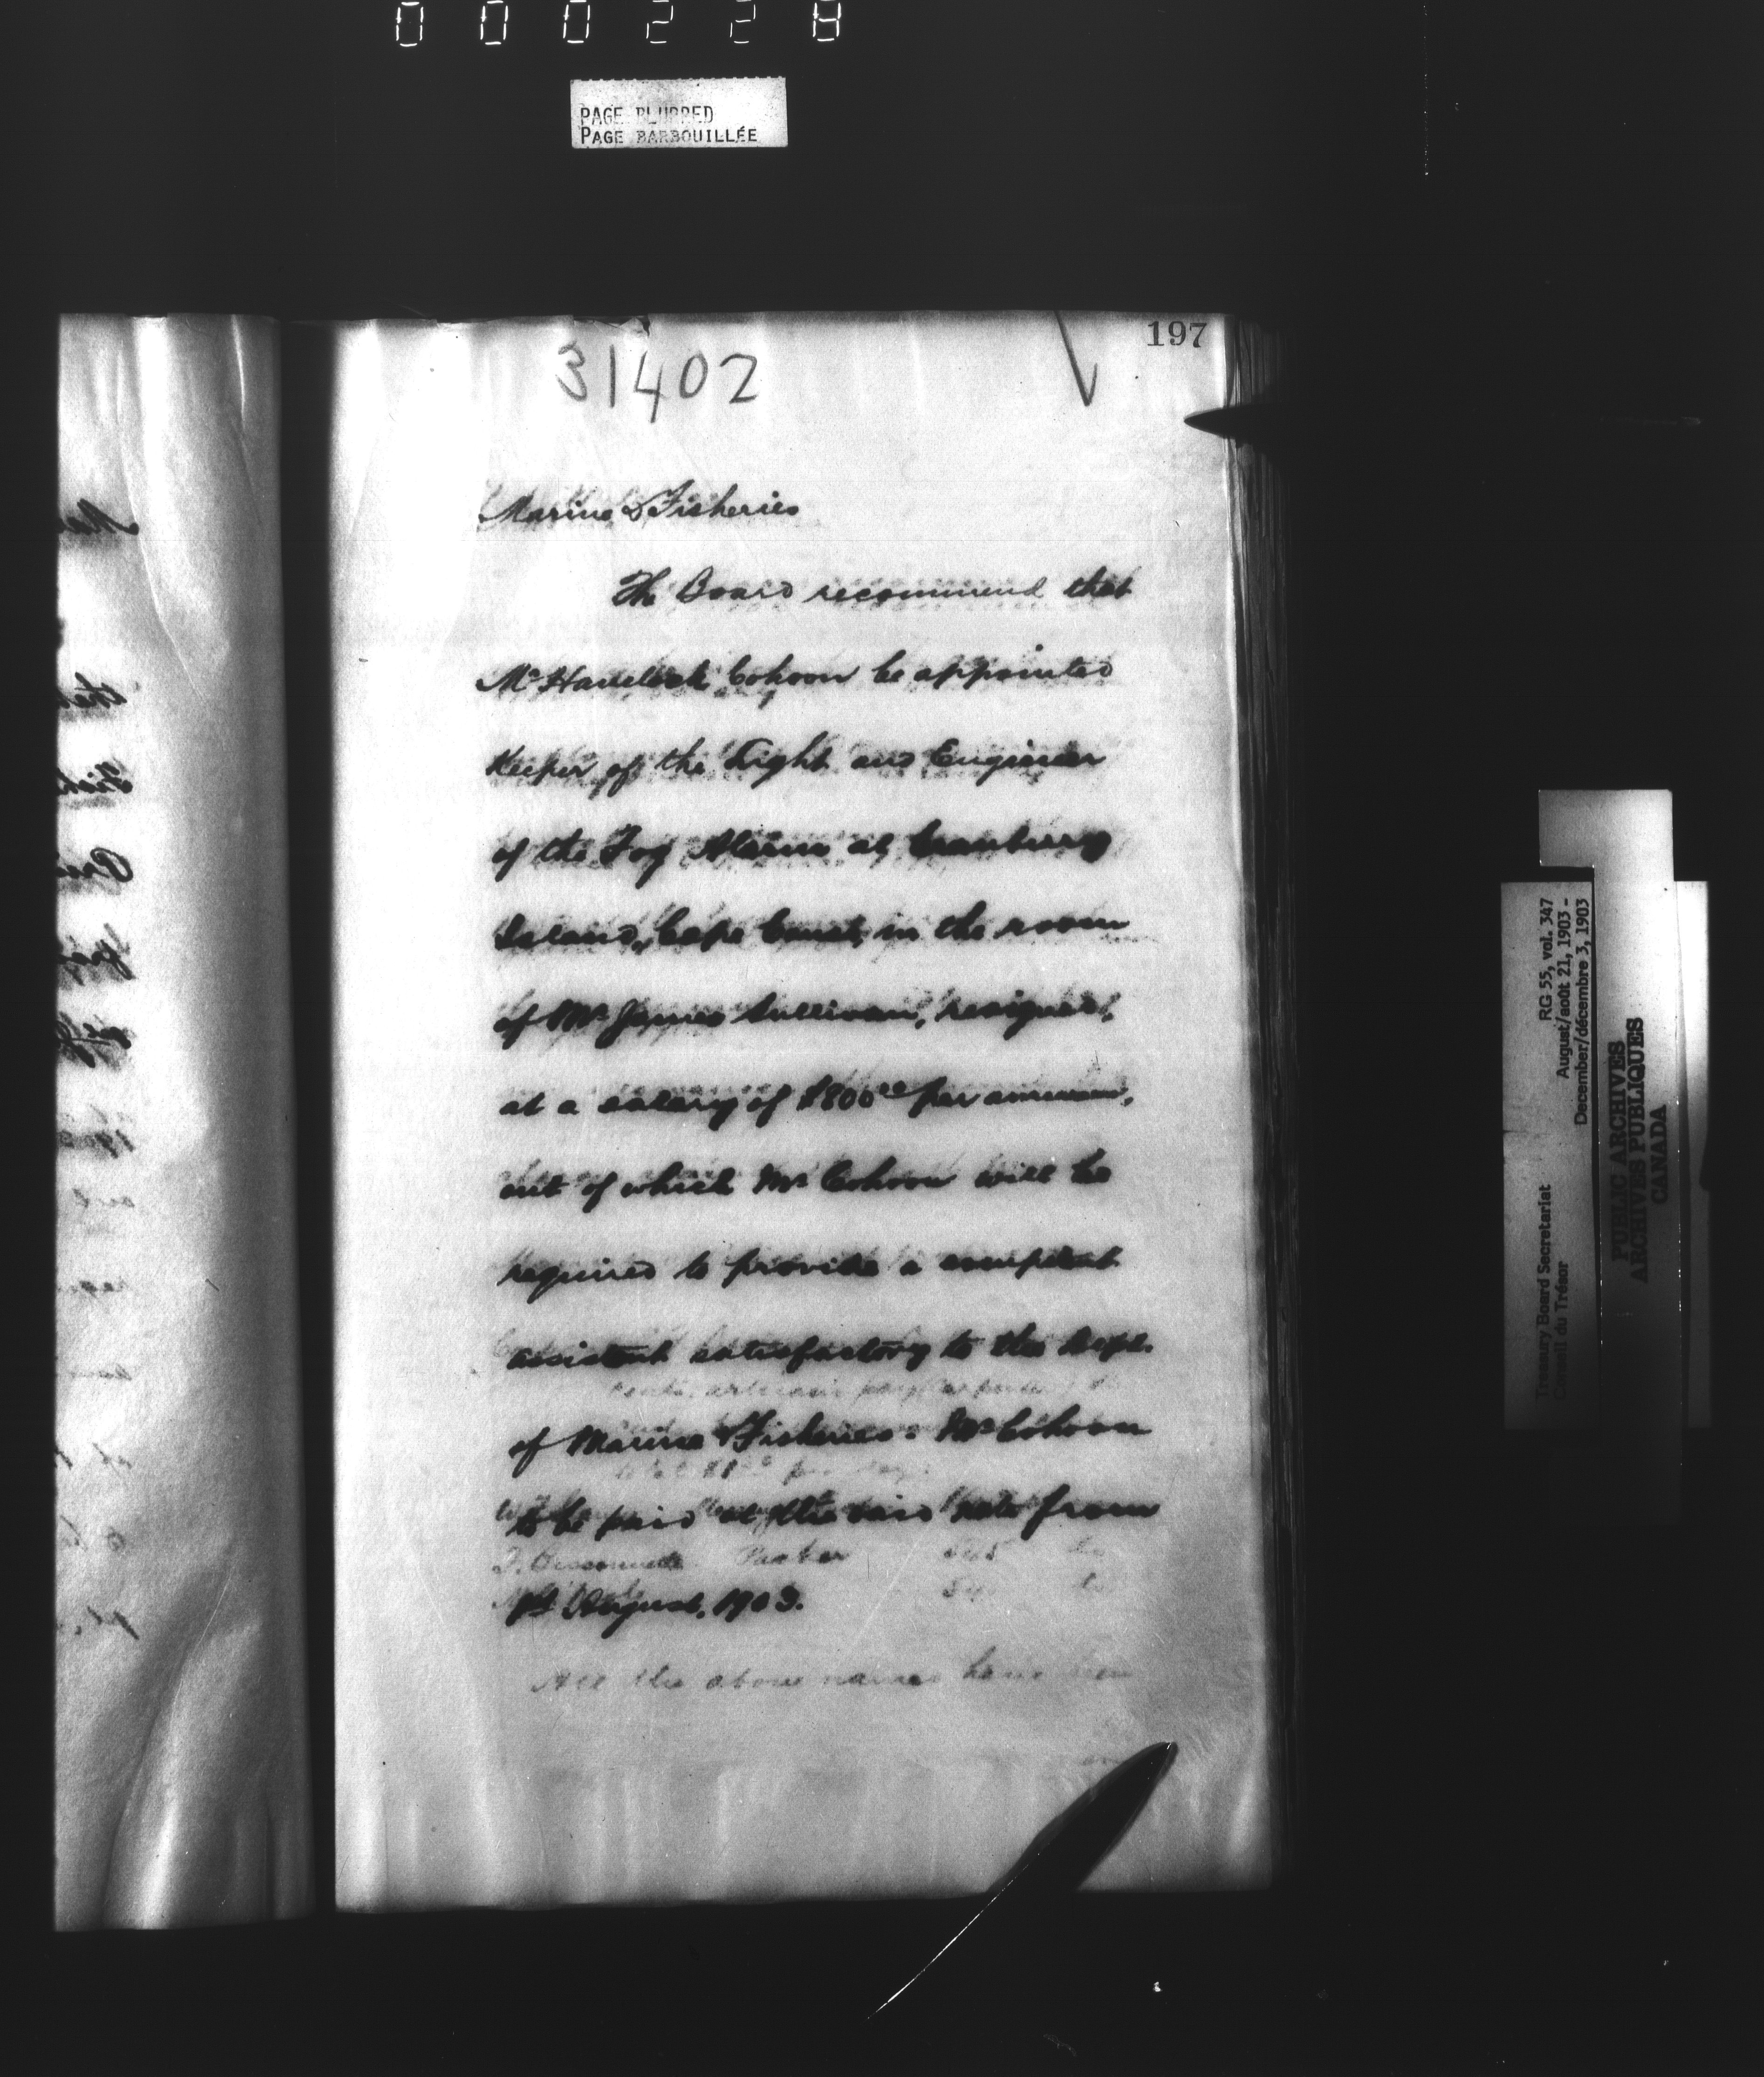 000228
PAGE BLURRED
PAGE BARBOUILLÉE
197
31402
Marine & Fisheries
The Board recommend that
Mr Havelock Cohoon be appointed
Keeper of the Light and Engineer
of the Fog Alarm at Cranberry
Island, Cape Canso, in the room
of Mr James Sullivan, resigned,
at a salary of $800.00 per annum,
out of which Mr Cohoon will be
required to provide a competent
assistant satisfactory to the Dept.
of Marine & Fisheries. Mr Cohoon
to be paid at the said rate from
1st August, 1903.
All the above names have been
Treasury Board Secretariat RG 55, vol. 347
Conseil du Trésor August/août 21, 1903 -
December/décembre 3, 1903
PUBLIC ARCHIVES
ARCHIVES PUBLIQUES
CANADA